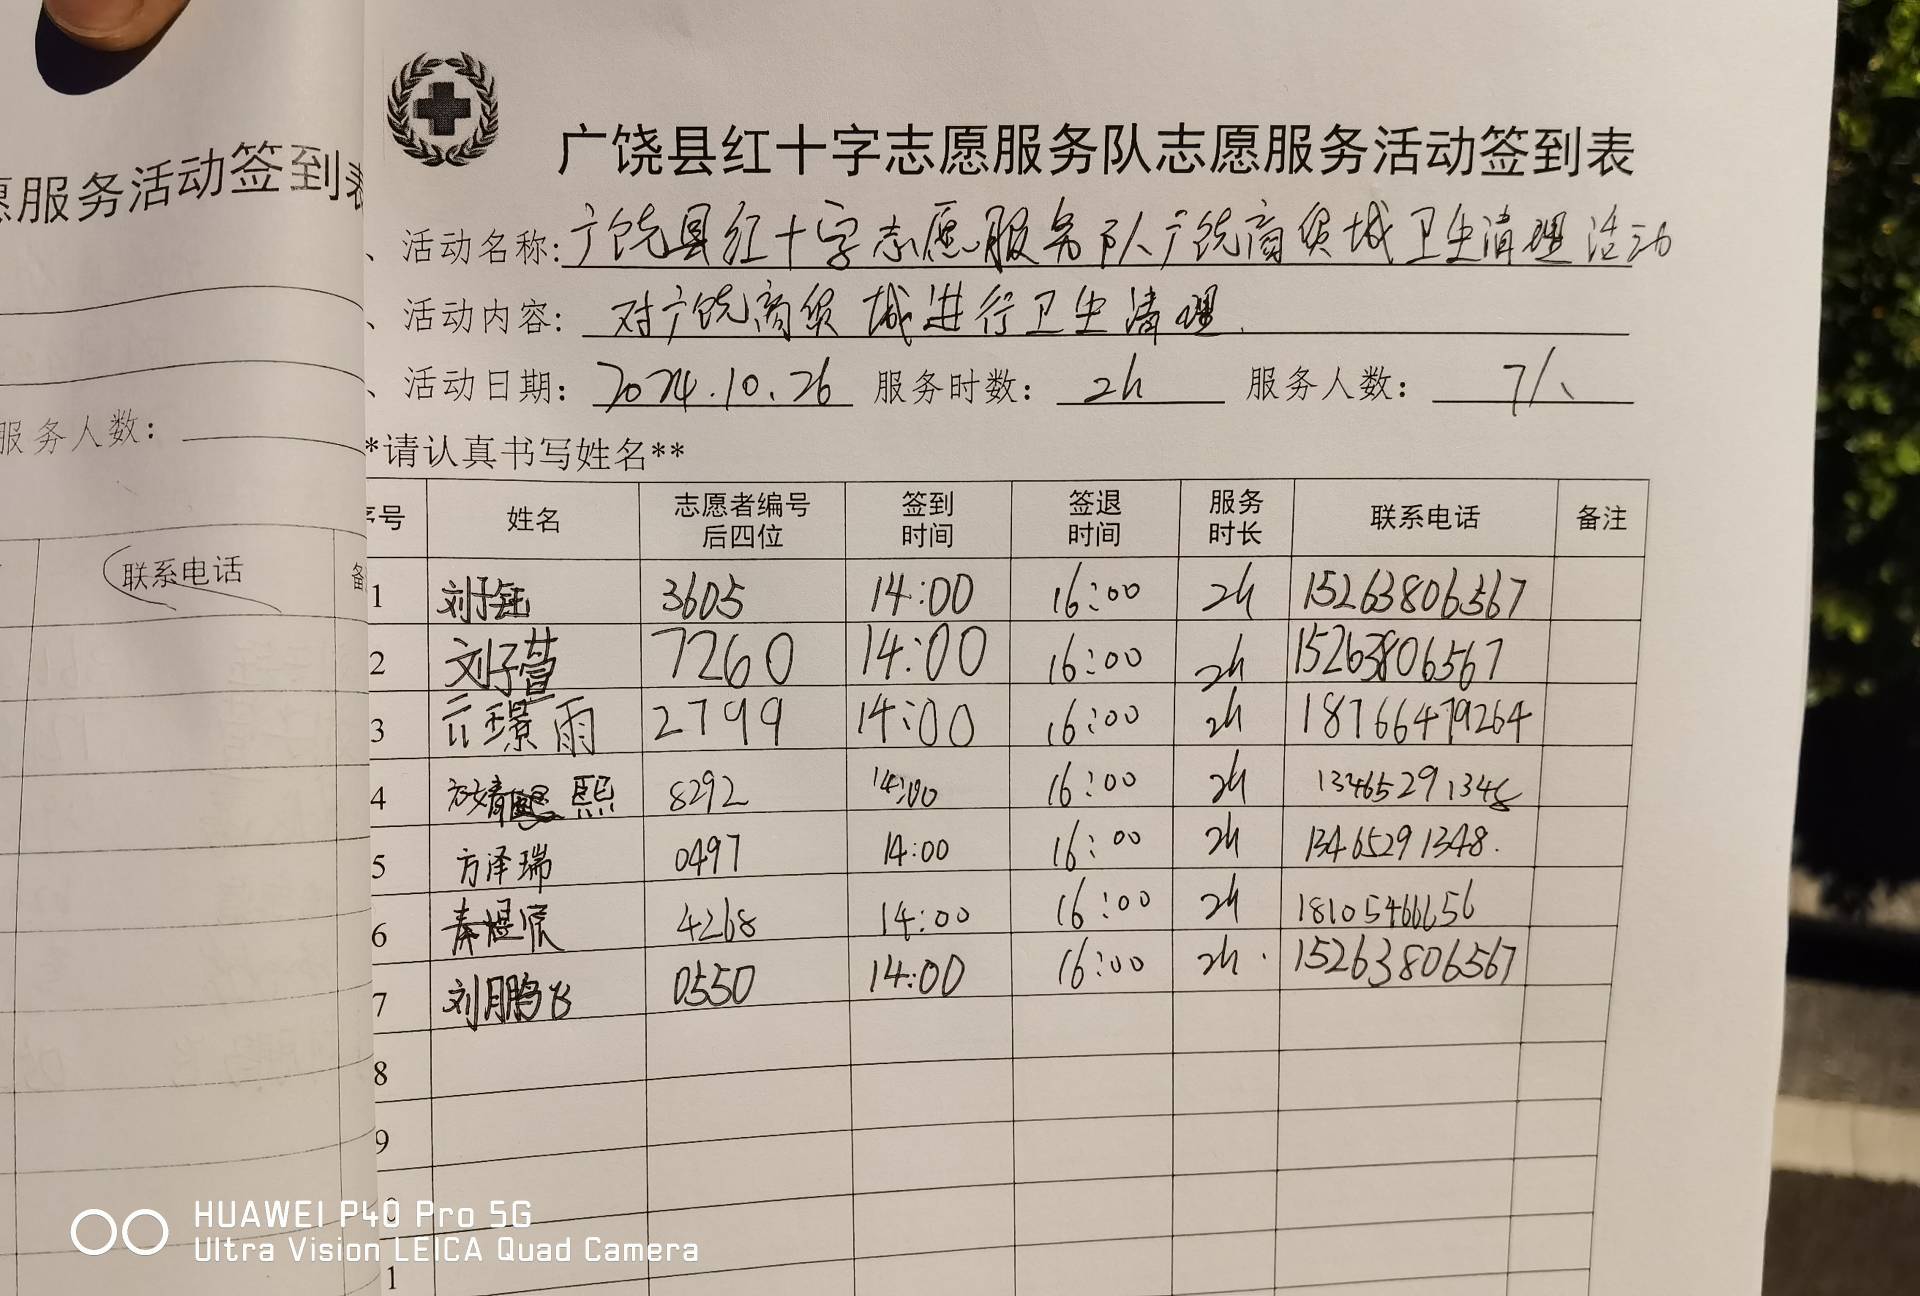 广饶县红十字志愿服务队志愿服务活动签到表
愿服务活动签到表
、活动名称:广饶县红十字志愿服务队广饶商贸城卫生清理活动
、活动内容: 对广饶商贸城进行卫生清理.
、活动日期: 2024.10.26 服务时数: 2h 服务人数: 7人
服务人数:
*请认真书写姓名**
序号 姓名 志愿者编号后四位 签到时间 签退时间 服务时长 联系电话 备注
联系电话 备
1 刘子钰 3605 14:00 16:00 2h 15263806567
2 刘子萱 7260 14:00 16:00 2h 15263806567
3 亓璟雨 2799 14:00 16:00 2h 18766479264
4 熙 8292 14:00 16:00 2h 13465291348
5 方泽瑞 0497 14:00 16:00 2h 13465291348.
6 4268 14:00 16:00 2h 18105466656
7 刘鹏飞 0550 14:00 16:00 2h. 15263806567
8
9
0
1
HUAWEI P40 Pro 5G
Ultra Vision LEICA Quad Camera